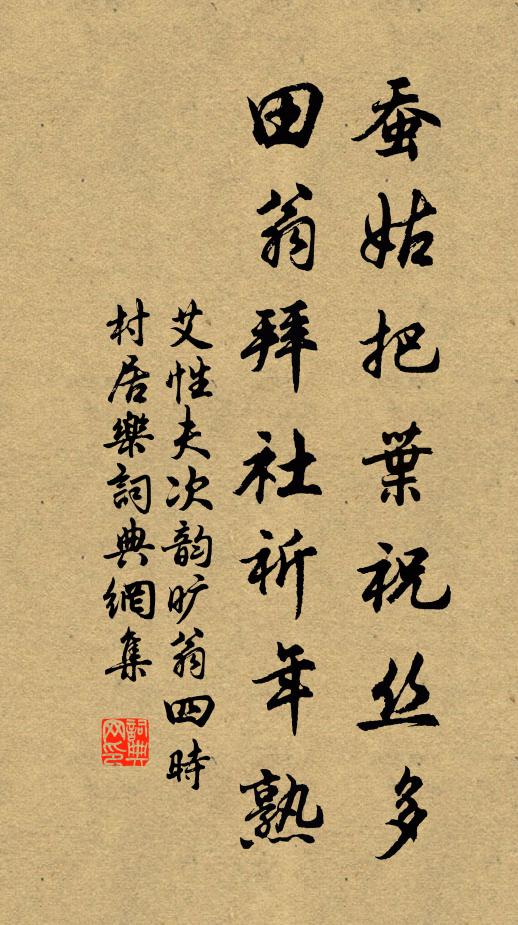 蚕姑把葉祝丝多
田翁拜社祈年熟
艾性夫次韵旷翁四時
村居樂詞典網集
詞典网印